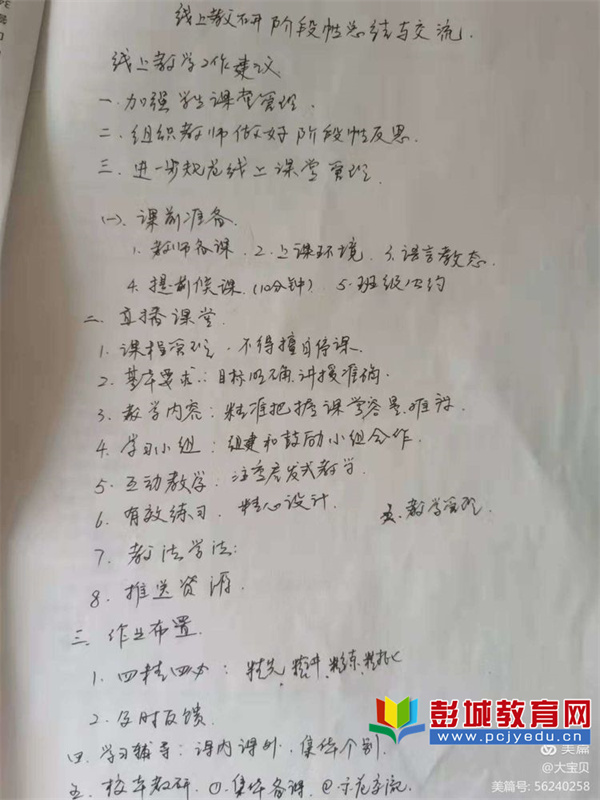 线上教研阶段性总结与交流.
线上教学工作建议
一.加强学生课堂管理.
二.组织教师做好阶段性反思.
三.进一步规范线上课堂管理.
(一).课前准备.
1.教师备课.2.上课环境.3.语言教态.
4.提前候课.(10分钟) 5.班级公约
二.直播课堂.
1.课程管理,不得擅自停课.
2.基本要求:目标明确.讲授准确.
3.教学内容:精准把握课堂容量.
4.学习小组:组建和鼓励小组合作.
5.互动教学:注重启发式教学
6.有效练习.精心设计. 五.教学管理.
7.教法学法:
8.推送资源.
三.作业布置.
1.四精四:精选.精讲.精练.精批
2.及时反馈
四.学习辅导:课内课外.集体个别.
五.校本教研.①.集体备课.②示范
彭城教育网
www.pcjyedu.cn
美篇
@大宝贝
美篇号: 56240258